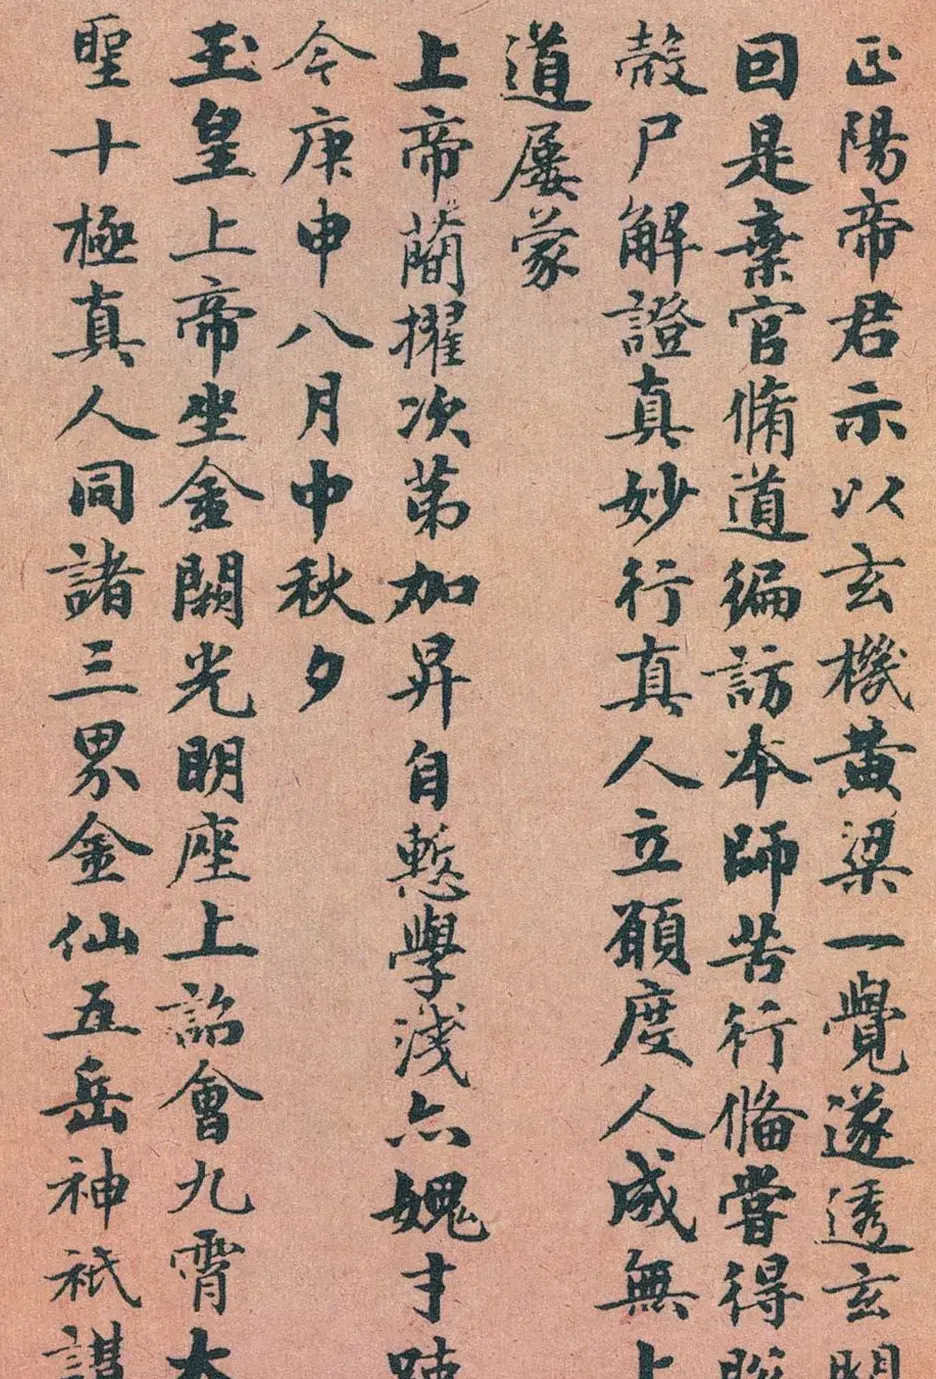 正陽帝君示以玄機黄粱一覺遂透玄關
回是棄官脩道徧訪本師苦行俻嘗得
殼尸解證真妙行真人立願度人成無上
道屢蒙
上帝蕑擢次第加昇自慙學淺亦媿才踈
今庚申八月中秋夕
玉皇上帝坐金闕光明座上詔會九霄大
聖十極真人同諸三界金仙五岳神祇